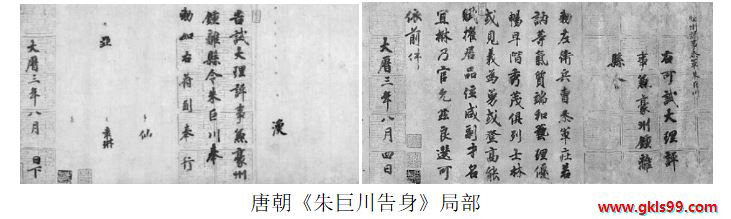 睦州録事參軍朱巨川
右可試大理評
事兼豪州鍾離
縣令
勑左衛兵曹參軍莊若
訥等氣質端和藝理優
暢早階秀茂俱列士林
或見義為勇或登高能
賦擢居品位咸副才名
宜楙乃官允茲良選可
依前件
大曆三年八月四日
告試大理評事兼豪州
鍾離縣令朱巨川奉
勑如右符到奉行
仙
大曆三年八月 日下
唐朝《朱巨川告身》局部
www.gkls99.com